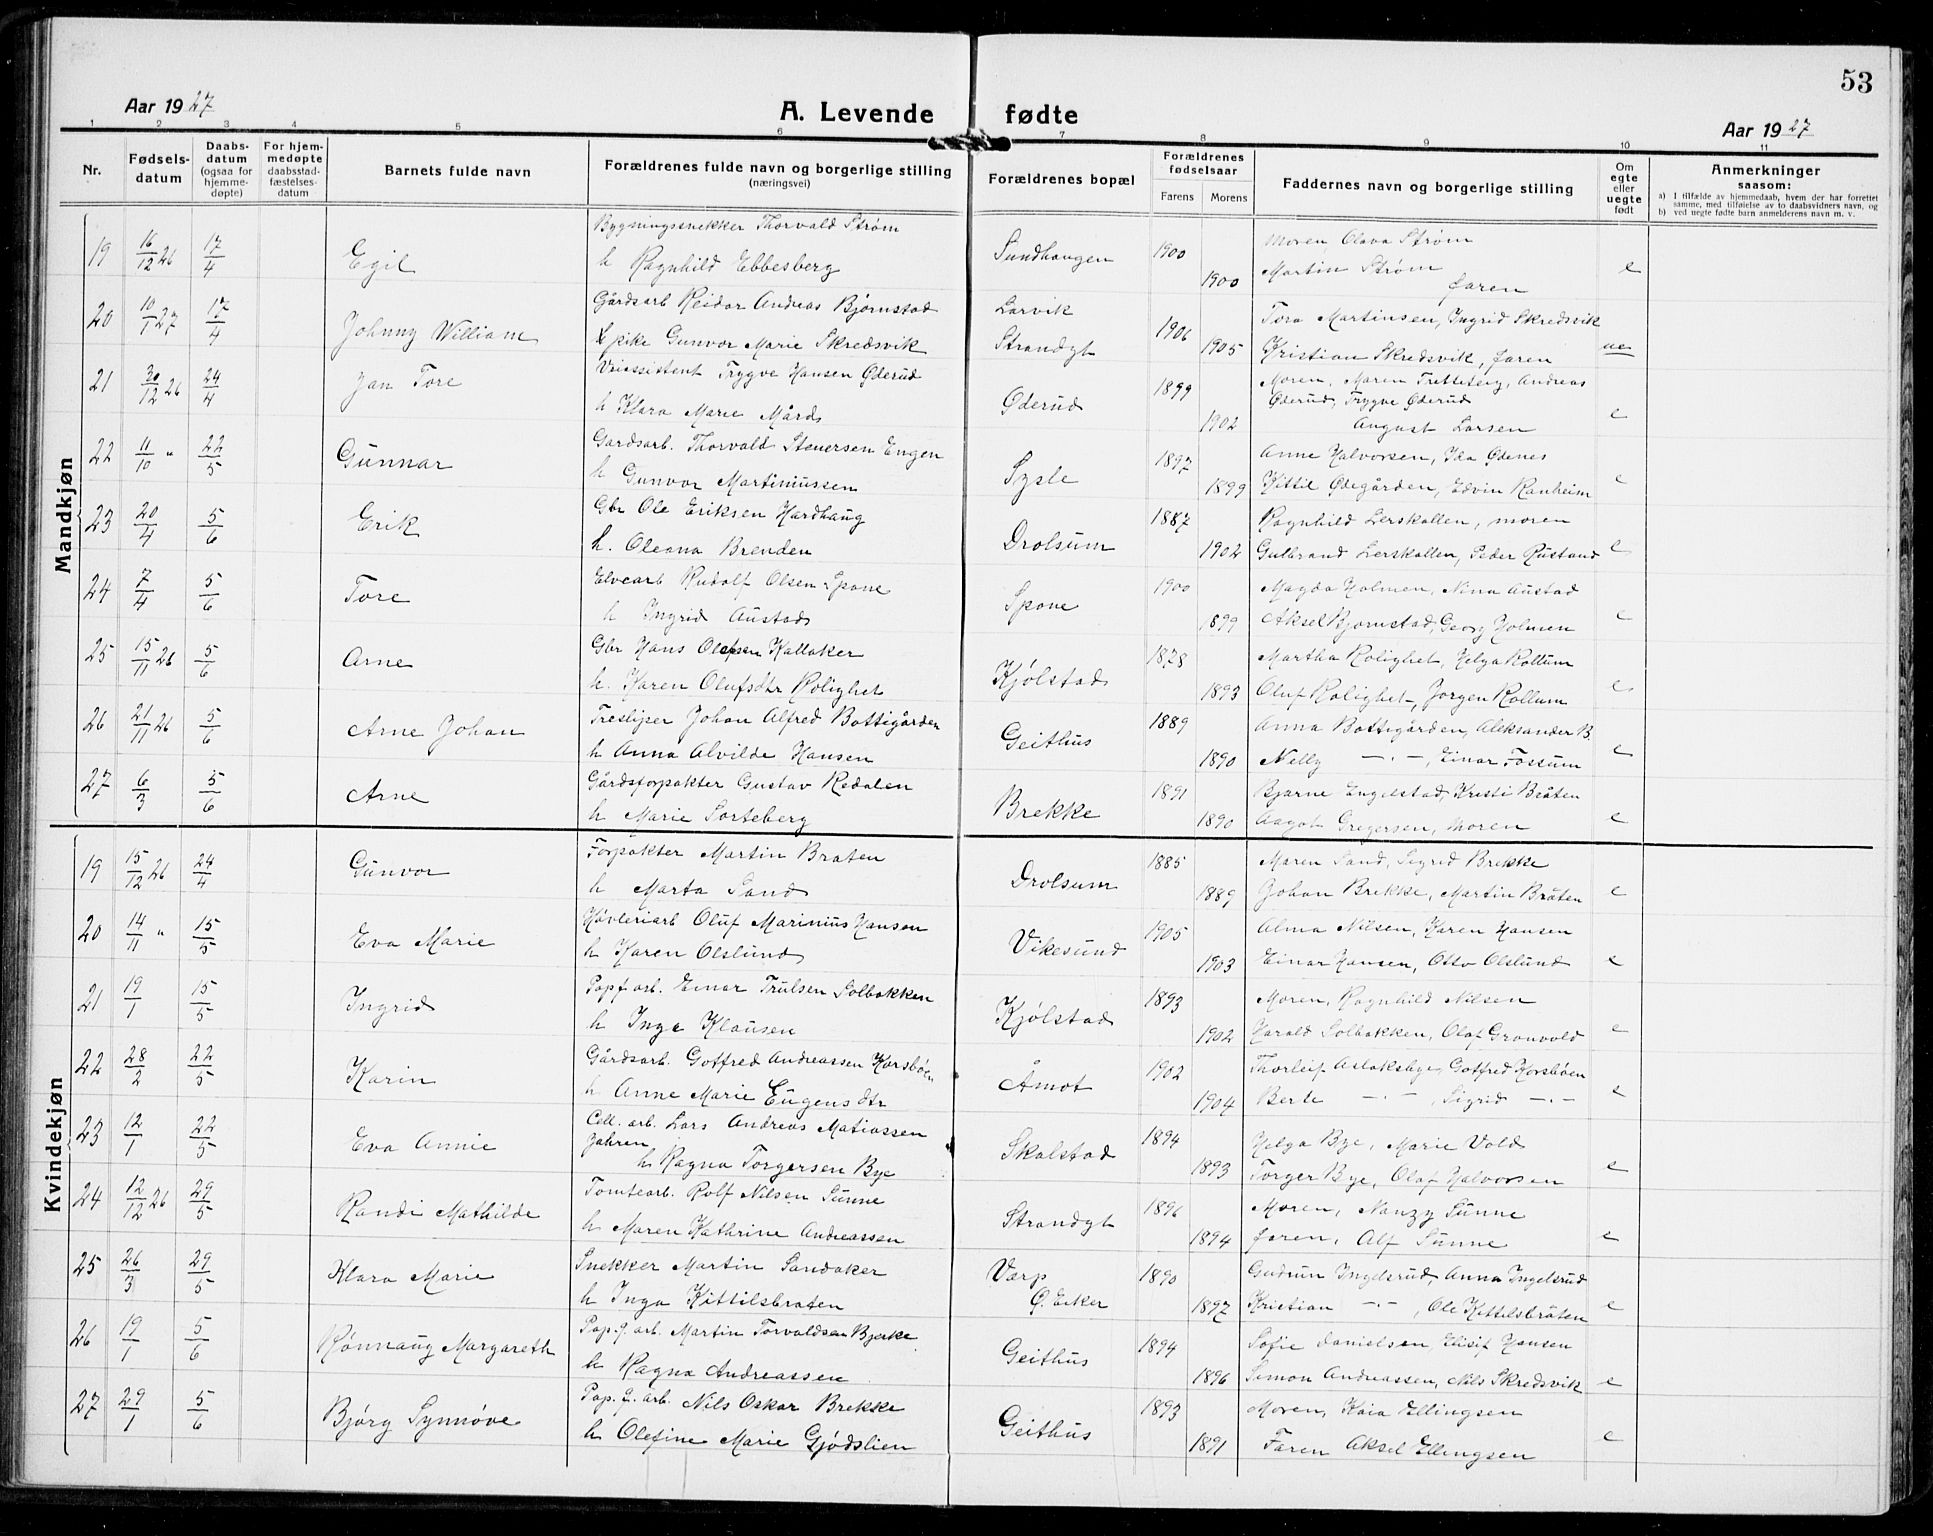 53
Aar 1927 A. Levende fødte Aar 1927
1 2 3 4 5 6 7 8 9 10 11
Nr. Fødsels-datum Daabs-datum (ogsaa for hjemme-døpte) For hjem-medøpte daabsstad-fæstelses-datum Barnets fulde navn Forældrenes fulde navn og borgerlige stilling (næringsvei) Forældrenes bopæl Forældrenes fødselsaar Farens Morens Faddernes navn og borgerlige stilling Om egte eller uegte født Anmerkninger saasom:
a) I tilfælde av hjemmedaab, hvem der har forrettet samme, med tilføielse av to daabsvidners navn, og
b) ved uegte fødte barn anmelderens navn m. v.
Mandkjøn
Bygningssnekker Thorvald Strøm Moren Olava Strøm
19 16/12 26 17/4 Egil h Ragnhild Ebbesberg Sundhaugen 1900 1900 Martin Strøm faren e
Gårdsarb Reidar Andreas Bjørnstad Larvik Tora Martinsen, Ingrid Skredsvik
20 10/1 27 17/4 Johnny William pike Gunvor Marie Skredsvik Strandgt 1906 1905 Kristian Skredsvik, faren ue
21 30/12 26 24/4 Jan Tore Trygve Hansen Øderud 1899 Moren, Maren Tretteteig, Andreas
Øderud, Trygve Øderud
h Klara Marie Mård Øderud 1902 August Larsen e
22 11/10 " 22/5 Gunnar Gardsarb. Thorvald Stenersen Engen 1897 Anne Halvorsen, Ida Ødenes
h Gunvor Martiniussen Sysle 1899 Kittil Ødegården, Edvin Ranheim e
23 20/4 5/6 Erik Gbr Ole Eriksen Hardhaug 1887 Ragnhild Lerskallen, moren
h. Oleana Brenden Drolsum 1902 Gulbrand Lerskallen, Peder Rustand e
24 7/4 5/6 Tore Elvearb Rudolf Olsen Spone 1900 Magda Holmen, Nina Austad
h Ingrid Austad Spone 1899 Aksel Bjørnstad, Georg Holmen e
25 15/11 26 5/6 Arne Gbr Hans Olafsen Kallaker 1878 Martha Rolighet, Helga Rollum
h. Karen Olufsdtr Rolighet Kjølstad 1893 Oluf Rolighet, Jørgen Rollum e
26 21/11 26 5/6 Arne Johan Tresliper Johan Alfred Bottigården 1889 Anna Bottigården, Aleksander B.
h Anna Alvilde Hansen Geithus 1890 Nelly —·—, Einar Fossum e
27 6/3 5/6 Arne Gårdsforpakter Gustav Redalen 1891 Bjarne Engelstad, Kristi Bråten
h Marie Sorteberg Brekke 1890 Aagot Gregersen, Moren e
Kvindekjøn
19 15/12 26 24/4 Gunvor Forpakter Martin Braten 1885 Maren Sand, Sigrid Brekke
h Marta Sand Drolsum 1889 Johan Brekke, Martin Bråten e
20 14/11 " 15/5 Eva Marie Høvleriarb Oluf Marinius Hansen 1905 Alma Nilsen, Karen Hansen
h Karen Olslund Vikesund 1903 Einar Hansen, Otto Olslund e
21 19/1 15/5 Ingrid Papf arb. Einar Trulsen Solbakken 1893 Moren, Ragnhild Nilsen
h Inga Klausen Kjølstad 1902 Harald Solbakken, Olaf Grønvold e
22 28/2 22/5 Karin Gårdsarb. Gotfred Andreassen Korsbøen 1902 Thorleif Aslaksbye, Gotfred Korsbøen
h Anne Marie Eugensdtr Åmot 1904 Berte —·—, Sigrid —·— e
23 12/1 22/5 Eva Annie Cell. arb. Lars Andreas Matiassen 1894 Helga Bye, Marie Vold
Jahren
h Ragna Torgersen Bye Skalstad 1893 Torger Bye, Olaf Halvorsen e
24 12/12 26 29/5 Randi Mathilde Tomtearb. Rolf Nilsen Sunne 1896 Moren, Nanzy Sunne
h Maren Kathrine Andreassen Strandgt 1894 faren, Alf Sunne e
25 26/3 29/5 Klara Marie Snekker Martin Sandaker Varp 1890 Gudrun Ingelsrud, Anna Ingelsrud
h Inga Kittilsbraten Ø. Eiker 1897 Kristian —·—, Ole Kittilsbråten e
26 19/1 5/6 Rønnaug Margareth Pap. f. arb. Martin Torvaldsen Bjerke 1894 Sofie Danielsen, Elisif Hansen
h Ragna Andreassen Geithus 1896 Simon Andreassen, Nils Skredsvik e
27 29/1 5/6 Bjørg Synnøve Pap. f. arb. Nils Oskar Brekke 1893 Moren, Kaia Ellingsen
h Olefine Marie Gjødslien Geithus 1891 Faren Aksel Ellingsen e